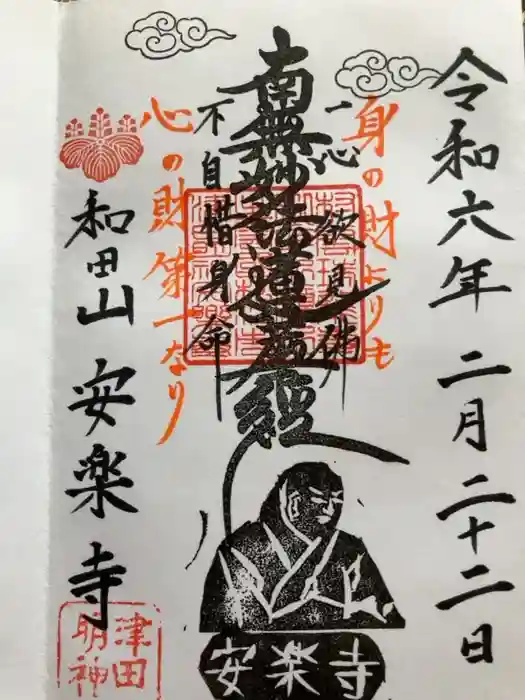 令和六年 二月二十二日
身の財よりも
一心欲見佛
南無妙法蓮華経
不自惜身命
心の財第一なり
和田山 安楽寺
津田明神
安楽寺